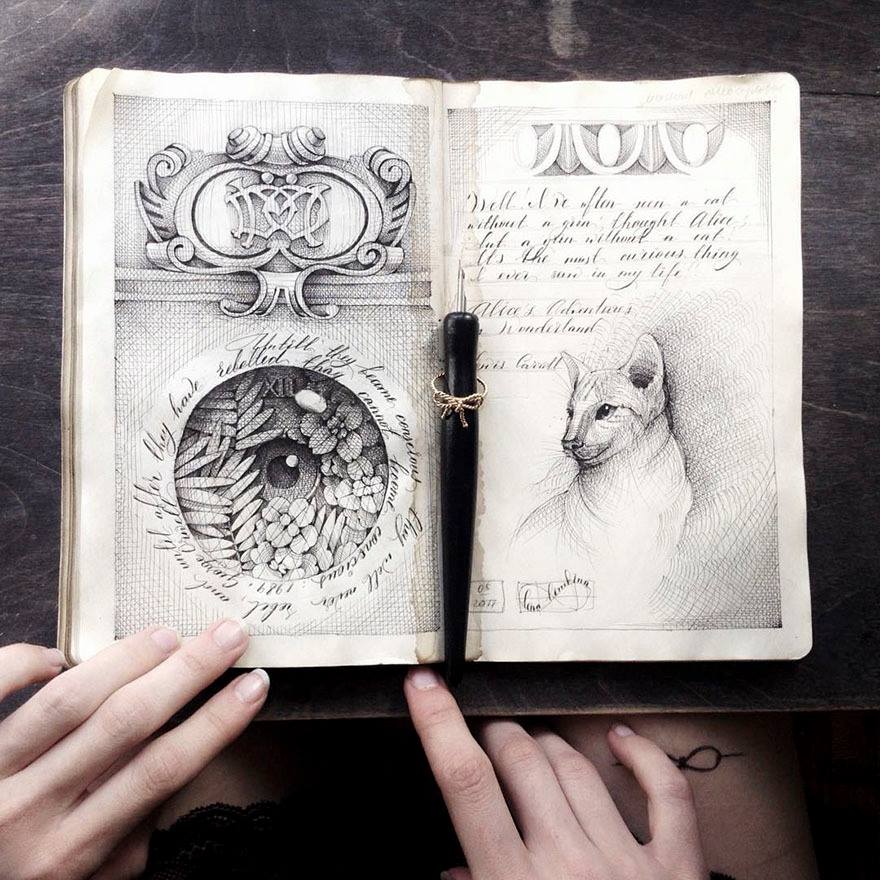 XIII
Untill they become conscious they will never rebel, and untill after they have rebelled they cannot become conscious. 1984, George Orwell
Well! I've often seen a cat
without a grin, thought Alice;
but a grin without a cat
It's the most curious thing
I ever saw in my life!
Alice's Adventures
in Wonderland
Lewis Carroll
05
2017